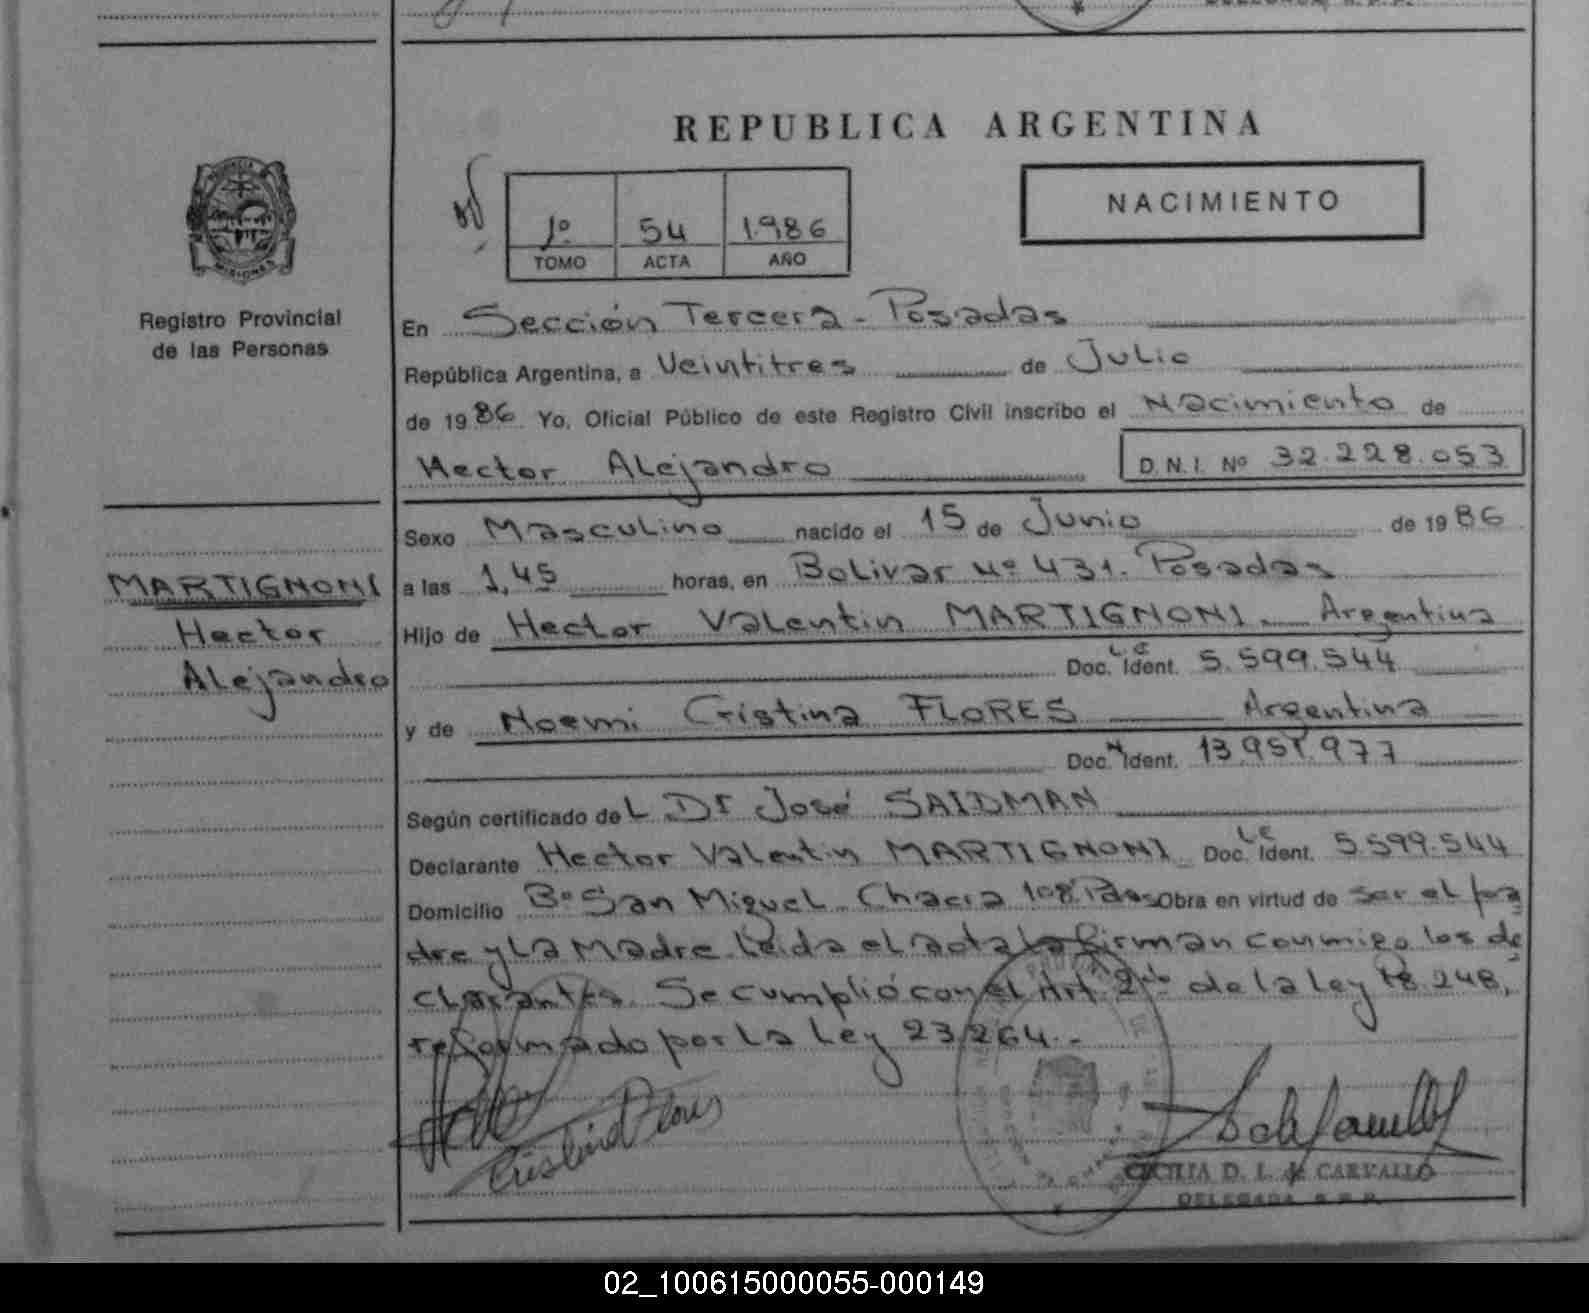 REPUBLICA ARGENTINA
NACIMIENTO
1º 54 1.986
TOMO ACTA AÑO
PROVINCIA
MISIONES
Registro Provincial
de las Personas
En Sección Tercera - Posadas
República Argentina, a Veintitres de Julio
de 1986 Yo, Oficial Público de este Registro Civil inscribo el Nacimiento de
Hector Alejandro D.N.I. Nº 32.228.053
Sexo Masculino nacido el 15 de Junio de 1986
MARTIGNONI
Hector
Alejandro
a las 1,45 horas, en Bolivar Nº 431. Posadas
Hijo de Hector Valentin MARTIGNONI Argentina
Doc. L E Ident. 5.599.544
y de Noemi Cristina FLORES Argentina
Doc. N Ident. 13.951.977
Según certificado del Dr José SAIDMAN
Declarante Hector Valentin MARTIGNONI Doc. L E Ident. 5.599.544
Domicilio Bº San Miguel Chacra 108 Pdas Obra en virtud de ser el pa
dre y la Madre. Leida el acta la firman conmigo los de
clarantes. Se cumplió con el Art. 2do de la Ley 18.248,
reformado por la Ley 23264.-
CECILIA D. L. de CARVALLO
DELEGADA R.P.P.
02_100615000055-000149